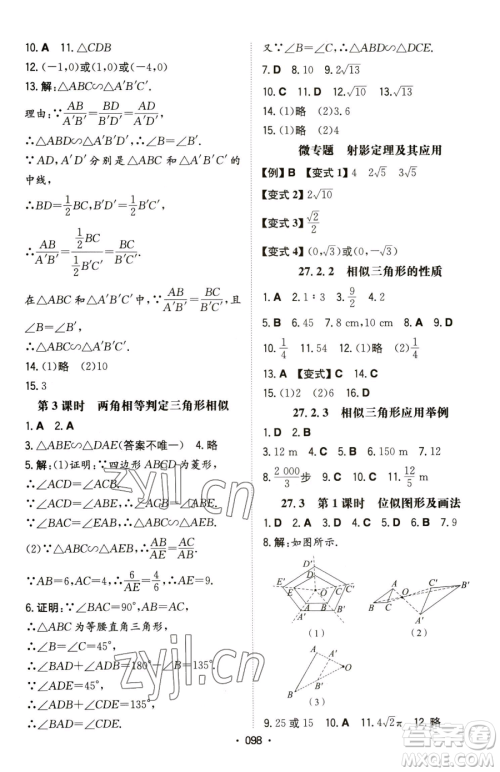 10. A　11. △CDB
12. (-1,0)或(1,0)或(-4,0)
13. 解:△ABC∽△A′B′C′.
理由:∵AB/A′B′=BD/B′D′=AD/A′D′,
∴△ABD∽△A′B′D′,∴∠B=∠B′.
∵AD,A′D′分别是△ABC和△A′B′C′的
中线,
∴BD=1/2BC,B′D′=1/2B′C′,
∴AB/A′B′=(1/2BC)/(1/2B′C′)=BC/B′C′.
在△ABC和△A′B′C′中,∵AB/A′B′=BC/B′C′,且
∠B=∠B′,∴△ABC∽△A′B′C′.
14. (1)略　(2)10
15. 3
第3课时　两角相等判定三角形相似
1. A　2. A
3. △ABE∽△DAE(答案不唯一)　4. 略
5. 解:(1)证明:∵四边形ABCD为菱形,
∴∠ACD=∠BCA.
∵∠ACD=∠ABE,
∴∠BAC=∠ABE,∴△ABC∽△AEB.
(2)∵△ABC∽△AEB,∴AB/AE=AC/AB.
∵AB=6,AC=4,∴6/AE=4/6,∴AE=9.
6. 证明:∵∠BAC=90°,AB=AC,
∴△ABC为等腰直角三角形,
∴∠B=∠C=45°,
∴∠BAD+∠ADB=180°-∠B=135°.
∵∠ADE=45°,
∴∠ADB+∠EDC=180°-45°=135°,
∴∠BAD=∠CDE.
又∵∠B=∠C,∴△ABD∽△DCE.
7. D　8. 10　9. 2√13
10. C　11. D　12. √10　13. √13
14. (1)略　(2)3.6
15. (1)略　(2)略
微专题　射影定理及其应用
【例】B　【变式1】4　2√5　3√5
【变式2】2√10
【变式3】√2/2
【变式4】(0,√3)或(0,-√3)
27.2.2　相似三角形的性质
1. A　2. 1∶3　3. 9/2　4. 2
5. B　6. 45　7. 8 cm,10 cm　8. D　9. B
10. 1/4　11. 54　12. D　13. 1/4
14. A　【变式】C
15. (1)略　(2)6
27.2.3　相似三角形应用举例
1. D　2. B
3. 12 m　4. C　5. B　6. 150 m　7. B
8. 2 000/3 步　9. 2.7　10. A　11. 12/5 m
27.3　第1课时　位似图形及画法
1. C　2. D　3. A　4. D　5. D　6. B　7. 9
8. 解:如图所示.
(1)　(2)
(3)
9. 25或15　10. A　11. 4√2π　12. 略
zyjl.cn
zyjl.cn
· 098 ·